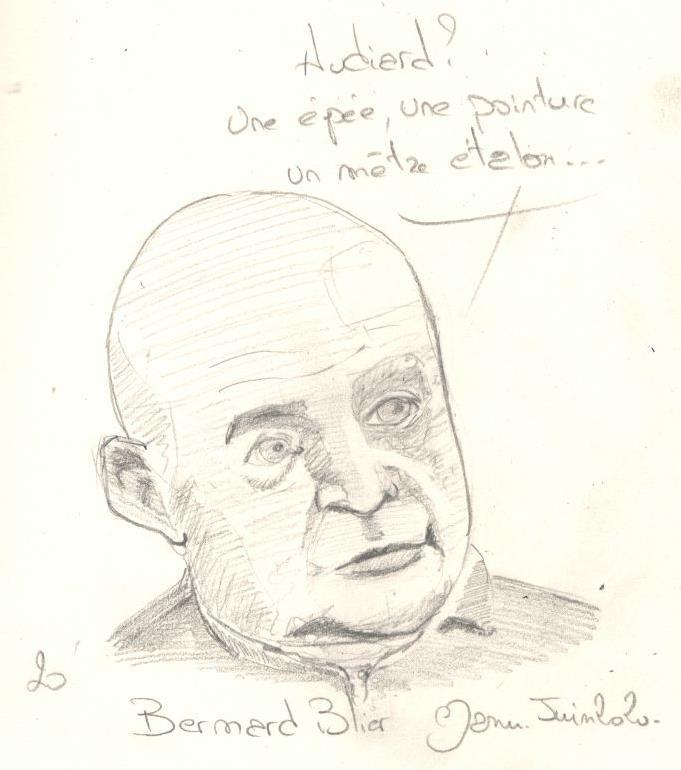 Audiard?
Une épée, une pointure
un mètre étalon...
20
Bernard Blier Juin 2020.